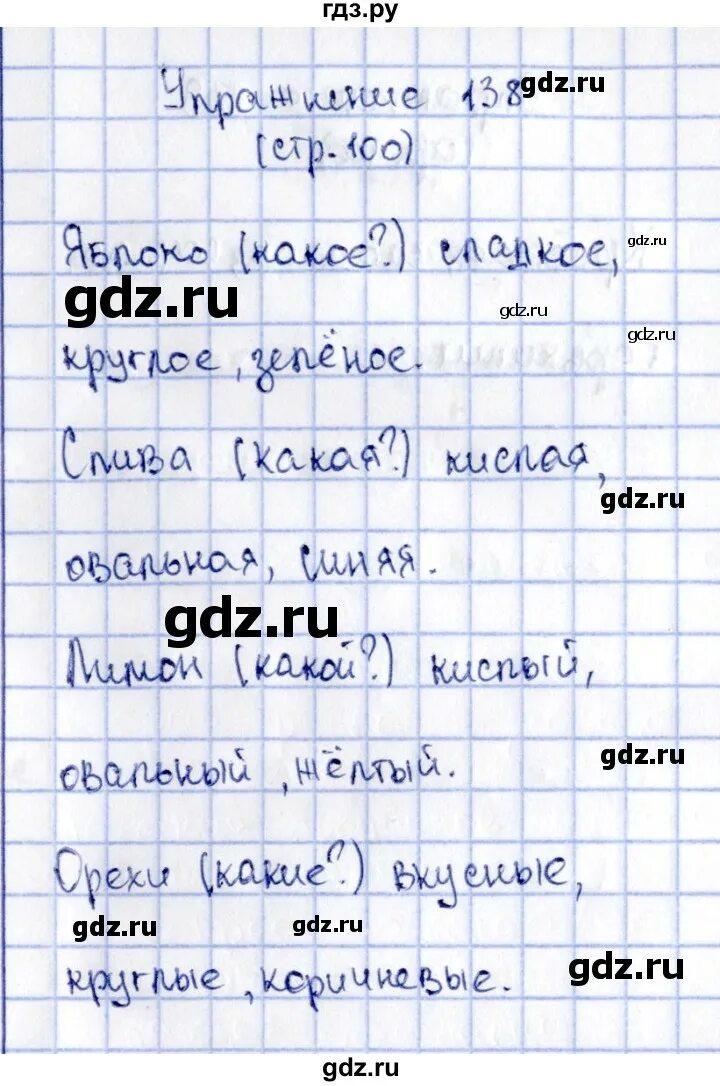 гдз.ру
Упражнение 138 gdz.ru
(стр. 100)
Яблоко (какое?) сладкое, gdz.ru
gdz.ru
gdz.ru
gdz.ru
круглое, зелёное.
Слива (какая?) кислая,
gdz.ru
овальная, синяя.
gdz.ru
Лимон (какой?) кислый,
gdz.ru
овальный, жёлтый.
Орехи (какие?) вкусные,
gdz.ru gdz.ru
gdz.ru
круглые, коричневые.
gdz.ru